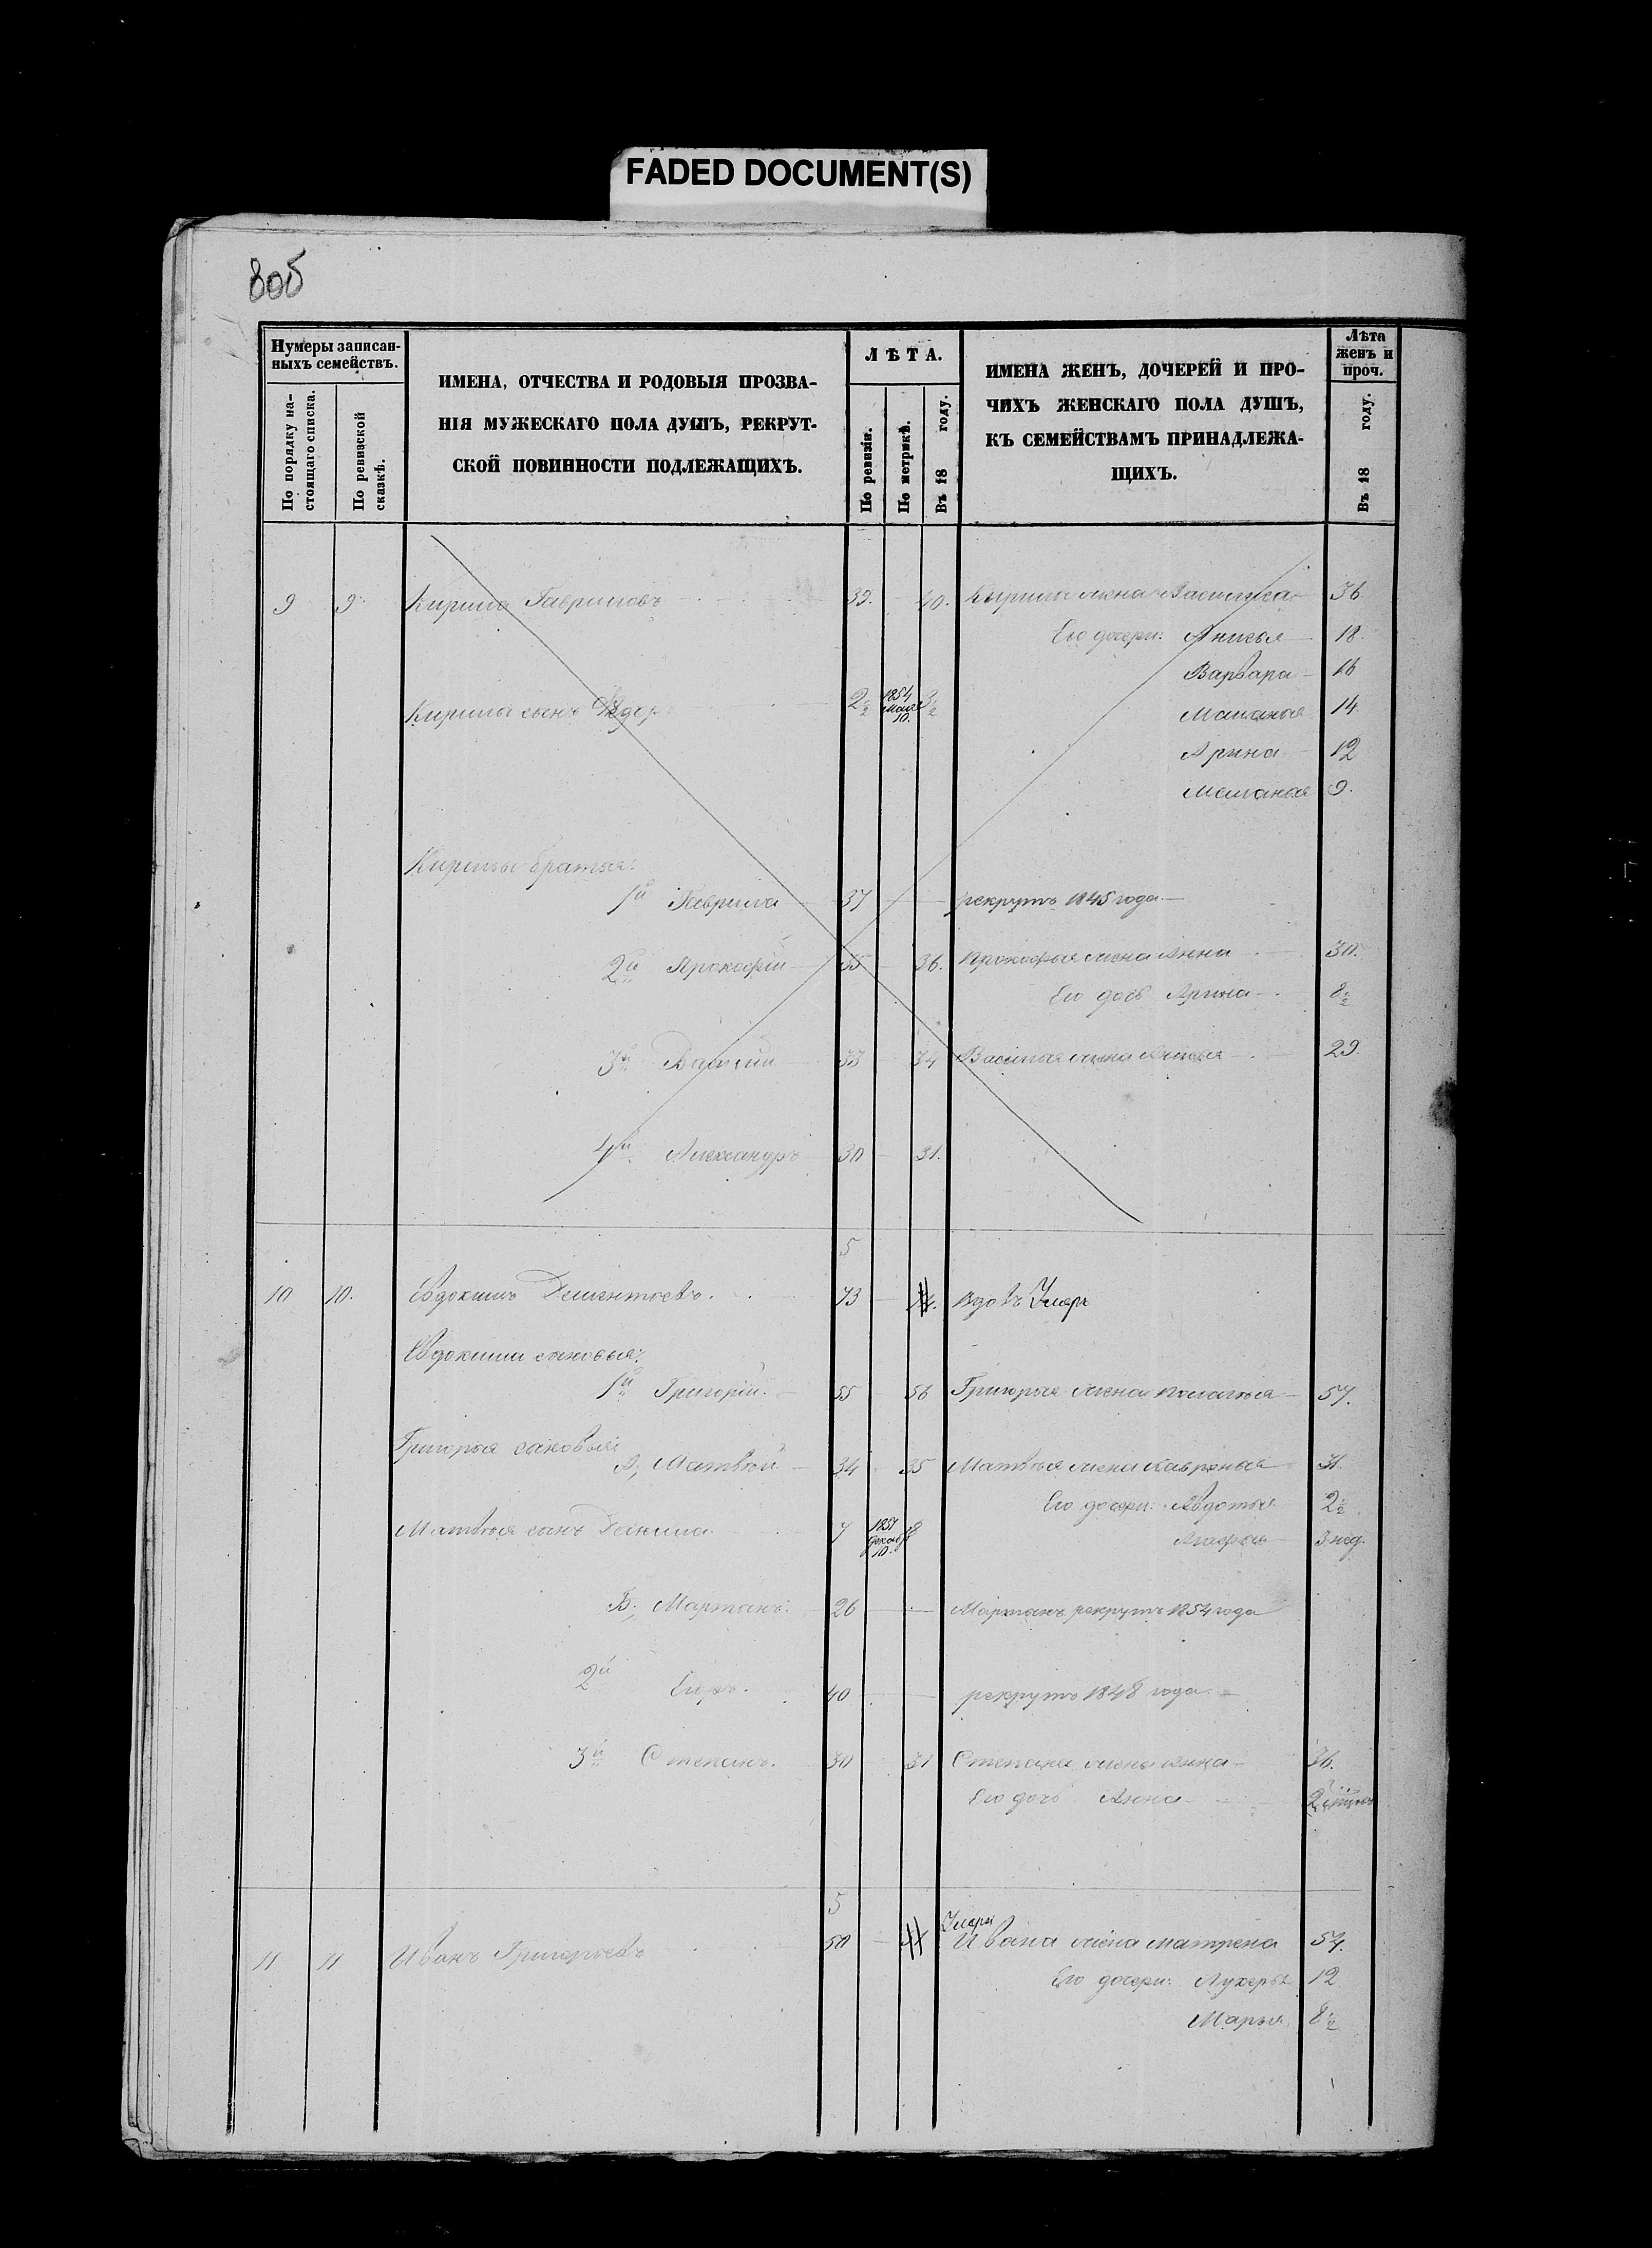 FADED DOCUMENT(S)
80б
Нумеры записан-
ныхъ семействъ.
По порядку на-
стоящаго списка.
По ревизской
сказкѣ.
ИМЕНА, ОТЧЕСТВА И РОДОВЫЯ ПРОЗВА-
НІЯ МУЖЕСКАГО ПОЛА ДУШЪ, РЕКРУТ-
СКОЙ ПОВИННОСТИ ПОДЛЕЖАЩИХЪ.
ЛѢТА.
По ревизіи.
По метрикѣ.
Въ 18 году.
ИМЕНА ЖЕНЪ, ДОЧЕРЕЙ И ПРО-
ЧИХЪ ЖЕНСКАГО ПОЛА ДУШЪ,
КЪ СЕМЕЙСТВАМЪ ПРИНАДЛЕЖА-
ЩИХЪ.
Лѣта
женъ и
проч.
Въ 18 году.
9 9. Кирила Гавриловъ 39. 40. Кирила жена Василиса 36
Его дочери: Анисья 18.
Варвара 16
Кирила сынъ 2½ 1854 Мая 10. 3½ Маланья 14
Арина 12
Меланья 9.
Кирилы братья:
1й Гаврила 37 рекрутъ 1845 года
2й Прокофій 35 36. Прокофья жена Анна 30.
Его дочь Арина 8½
3й Василій 33 34 Василья жена 29.
4й Александръ 30 31.
5
10 10. Евдокимъ Дементьевъ. 73 74. вдовъ Умеръ
Евдокима сыновья:
1й Григорій. 55 56 Григорья жена Пелагея 57.
Григорья сыновья:
А, Матвѣй 34 35 Матвѣя жена Хавронья 31.
Его дочери: Авдотья 2½
Матвѣя сынъ Данила 7 1851 декабр 10. 8 Агафья 3 нед.
Б, Мартынъ. 26 Мартынъ рекрутъ 1854 года
2й Егоръ. 40 рекрутъ 1848 года
3й Степанъ. 30 31 Степана жена Анна 36.
Его дочь Анна
5
Умеръ
11 11 Иванъ Григорьевъ 50 Ивана жена Матрена 54.
Его дочери: Лукерья 12
Марья 8½